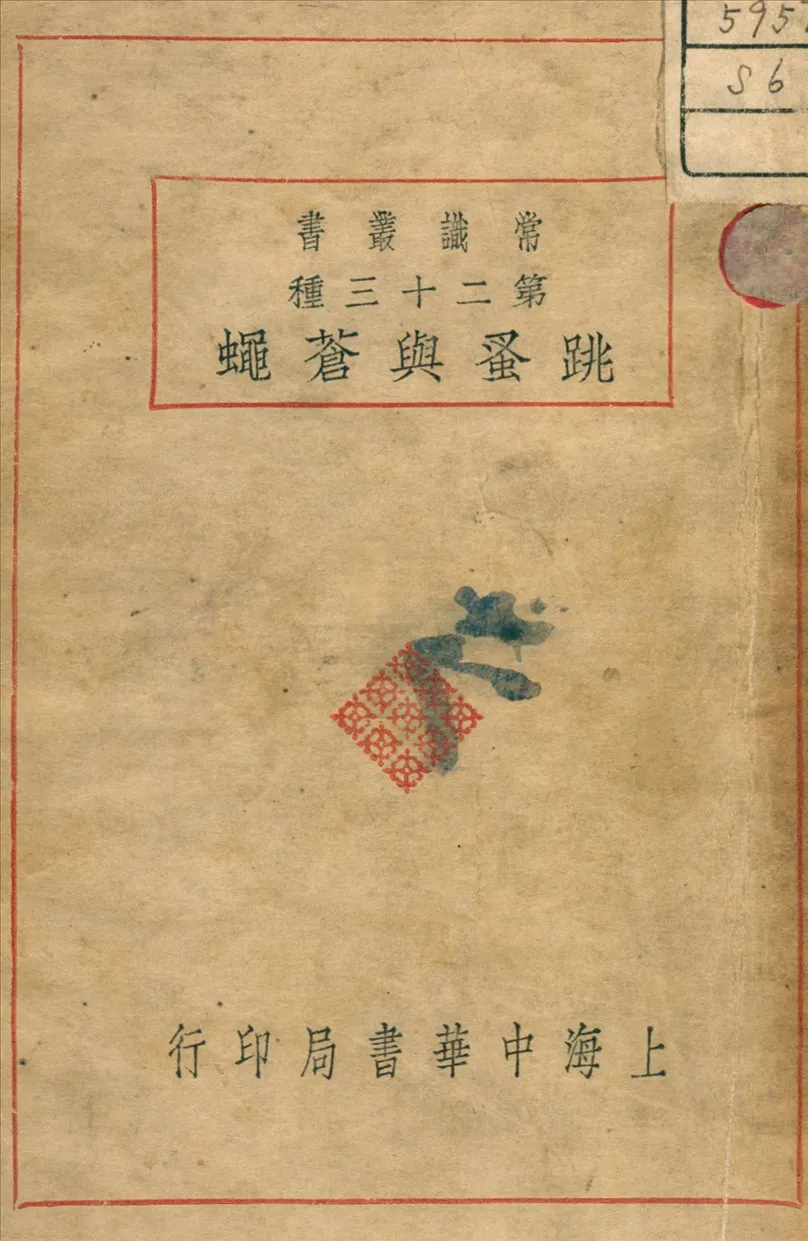 595
S6
常識叢書
第二十三種
跳蚤與蒼蠅
上海中華書局印行